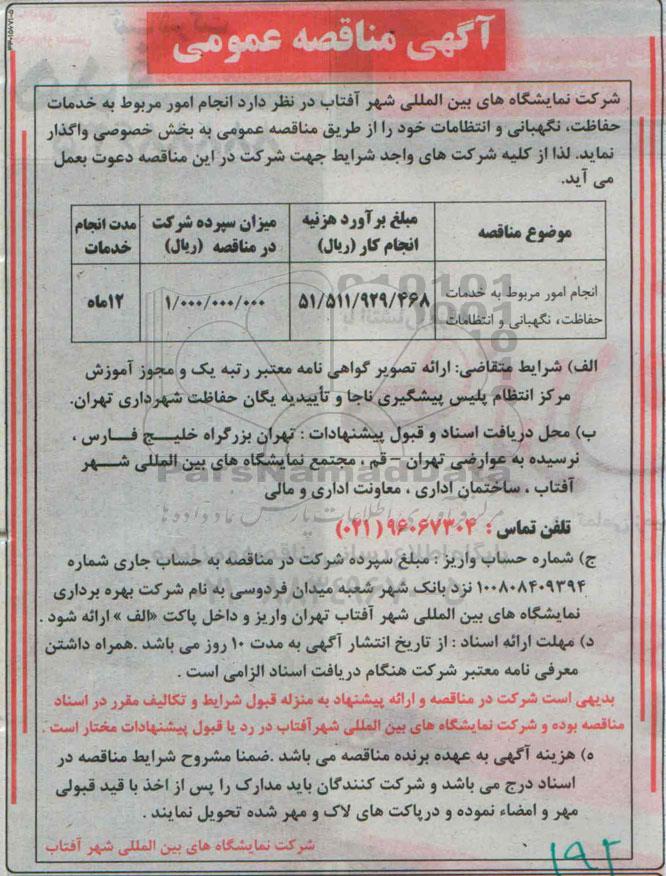 آگهی مناقصه عمومی
شرکت نمایشگاه های بین المللی شهر آفتاب در نظر دارد انجام امور مربوط به خدمات
حفاظت، نگهبانی و انتظامات خود را از طریق مناقصه عمومی به بخش خصوصی واگذار
نماید. لذا از کلیه شرکت های واجد شرایط جهت شرکت در این مناقصه دعوت بعمل
می آید.
موضوع مناقصه
مبلغ برآورد هزنیه انجام کار (ریال)
میزان سپرده شرکت در مناقصه (ریال)
مدت انجام خدمات
انجام امور مربوط به خدمات
حفاظت، نگهبانی و انتظامات
۵۱/۵۱۱/۹۲۹/۴۶۸
۱/۰۰۰/۰۰۰/۰۰۰
۱۲ماه
الف) شرایط متقاضی: ارائه تصویر گواهی نامه معتبر رتبه یک و مجوز آموزش
مرکز انتظام پلیس پیشگیری ناجا و تأییدیه یگان حفاظت شهرداری تهران.
ب) محل دریافت اسناد و قبول پیشنهادات : تهران بزرگراه خلیج فارس ،
نرسیده به عوارضی تهران – قم ، مجتمع نمایشگاه های بین المللی شهر
آفتاب ، ساختمان اداری ، معاونت اداری و مالی
ParsNamadData
تلفن تماس : ۹۶۰۶۷۳۰۴ (۰۲۱)
ج) شماره حساب واریز : مبلغ سپرده شرکت در مناقصه به حساب جاری شماره
۱۰۰۸۰۸۴۰۹۳۹۴ نزد بانک شهر شعبه میدان فردوسی به نام شرکت بهره برداری
نمایشگاه های بین المللی شهر آفتاب تهران واریز و داخل پاکت «الف » ارائه شود .
د) مهلت ارائه اسناد : از تاریخ انتشار آگهی به مدت ۱۰ روز می باشد .همراه داشتن
معرفی نامه معتبر شرکت هنگام دریافت اسناد الزامی است .
بدیهی است شرکت در مناقصه و ارائه پیشنهاد به منزله قبول شرایط و تکالیف مقرر در اسناد
مناقصه بوده و شرکت نمایشگاه های بین المللی شهرآفتاب در رد یا قبول پیشنهادات مختار است .
ه) هزینه آگهی به عهده برنده مناقصه می باشد .ضمنا مشروح شرایط مناقصه در
اسناد درج می باشد و شرکت کنندگان باید مدارک را پس از اخذ با قید قبولی
مهر و امضاء نموده و درپاکت های لاک و مهر شده تحویل نمایند .
شرکت نمایشگاه های بین المللی شهر آفتاب
۱۹۲